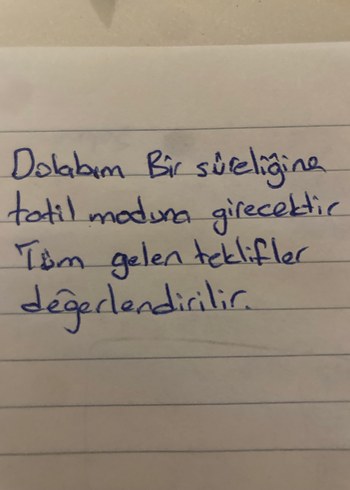 Dolabım Bir süreliğine
tatil moduna girecektir
Tüm gelen teklifler
değerlendirilir.